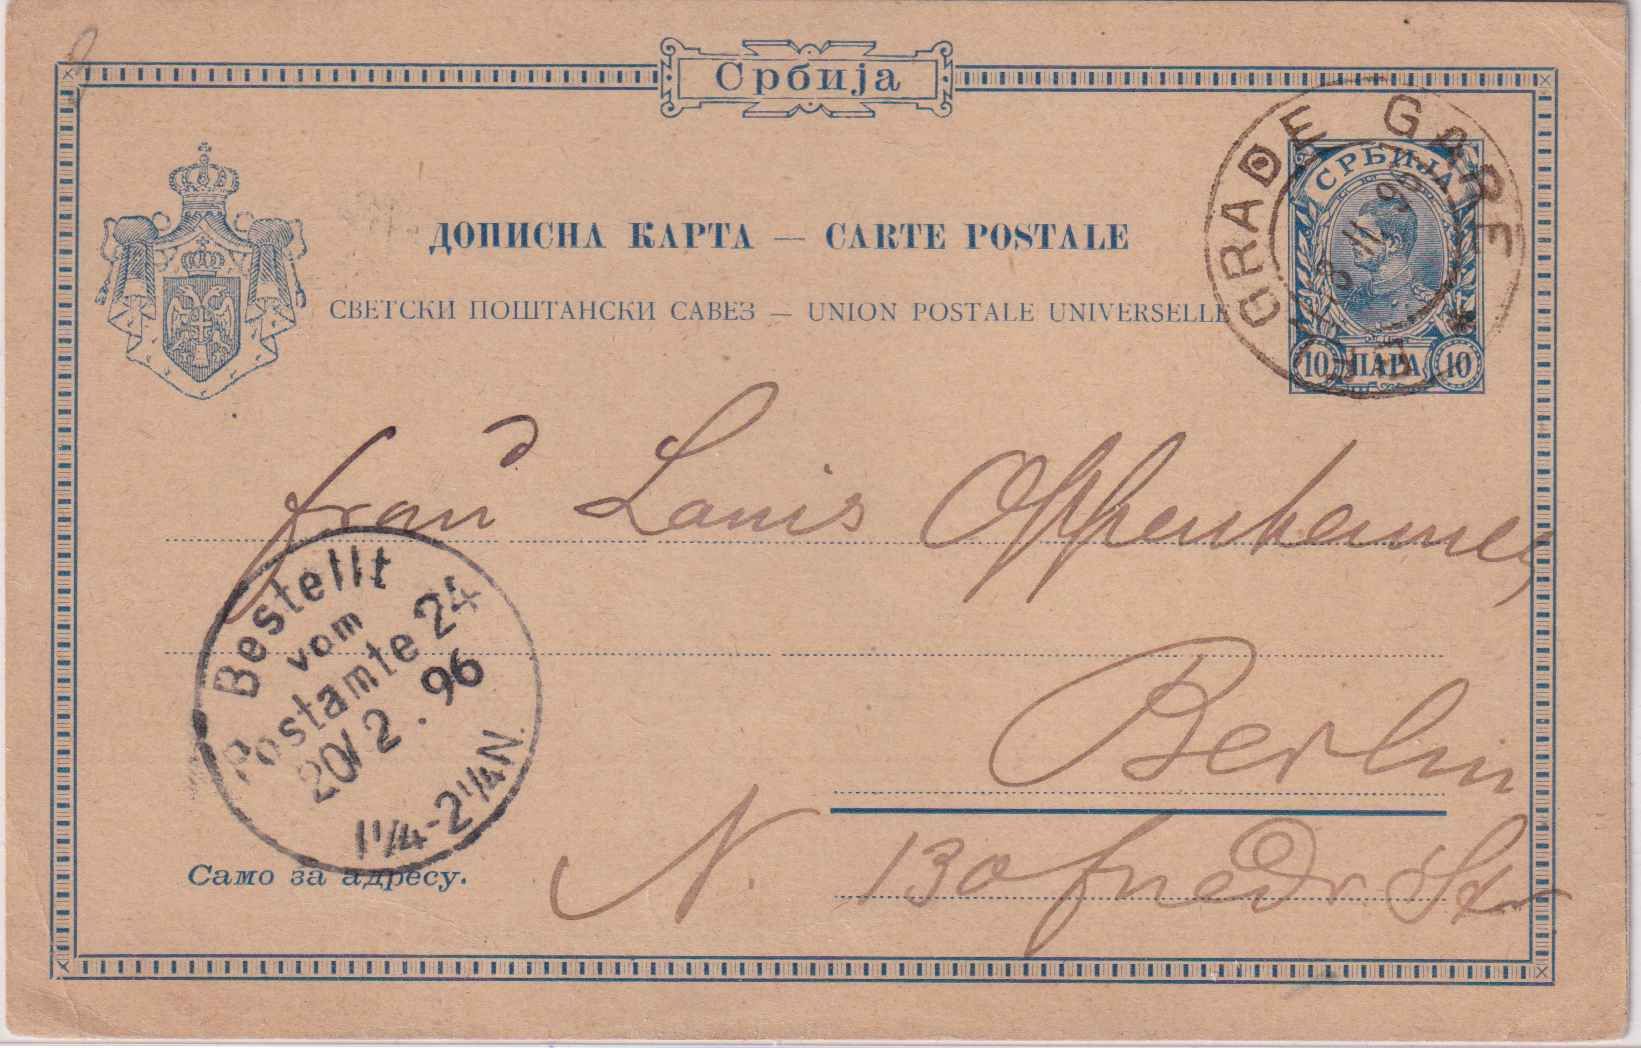 Србија
ДОПИСНА КАРТА — CARTE POSTALE
СВЕТСКИ ПОШТАНСКИ САВЕЗ — UNION POSTALE UNIVERSELLE
СРБИЈА
10 ПАРА 10
GRADE GARE
Frau Louis Oppenheimer
Berlin
N. 130 Friedr. Str
Bestellt
vom
Postamte 24
20/2.96
1¼-2¼N.
Само за адресу.